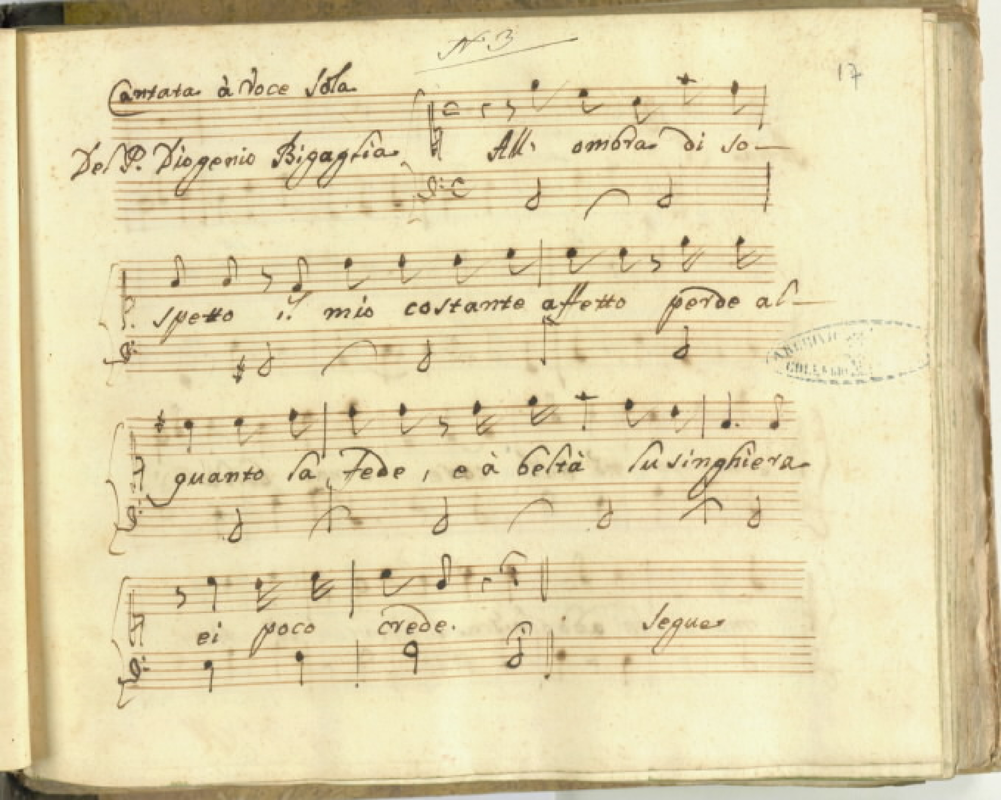 N 3
17
Cantata à Voce Sola
Del P. Diogenio Bigaglia
All' ombra di so-
spetto il mio costante affetto perde al-
quanto la Fede, e à beltà lusinghiera
ei poco crede.
segue
ARCHIVIO